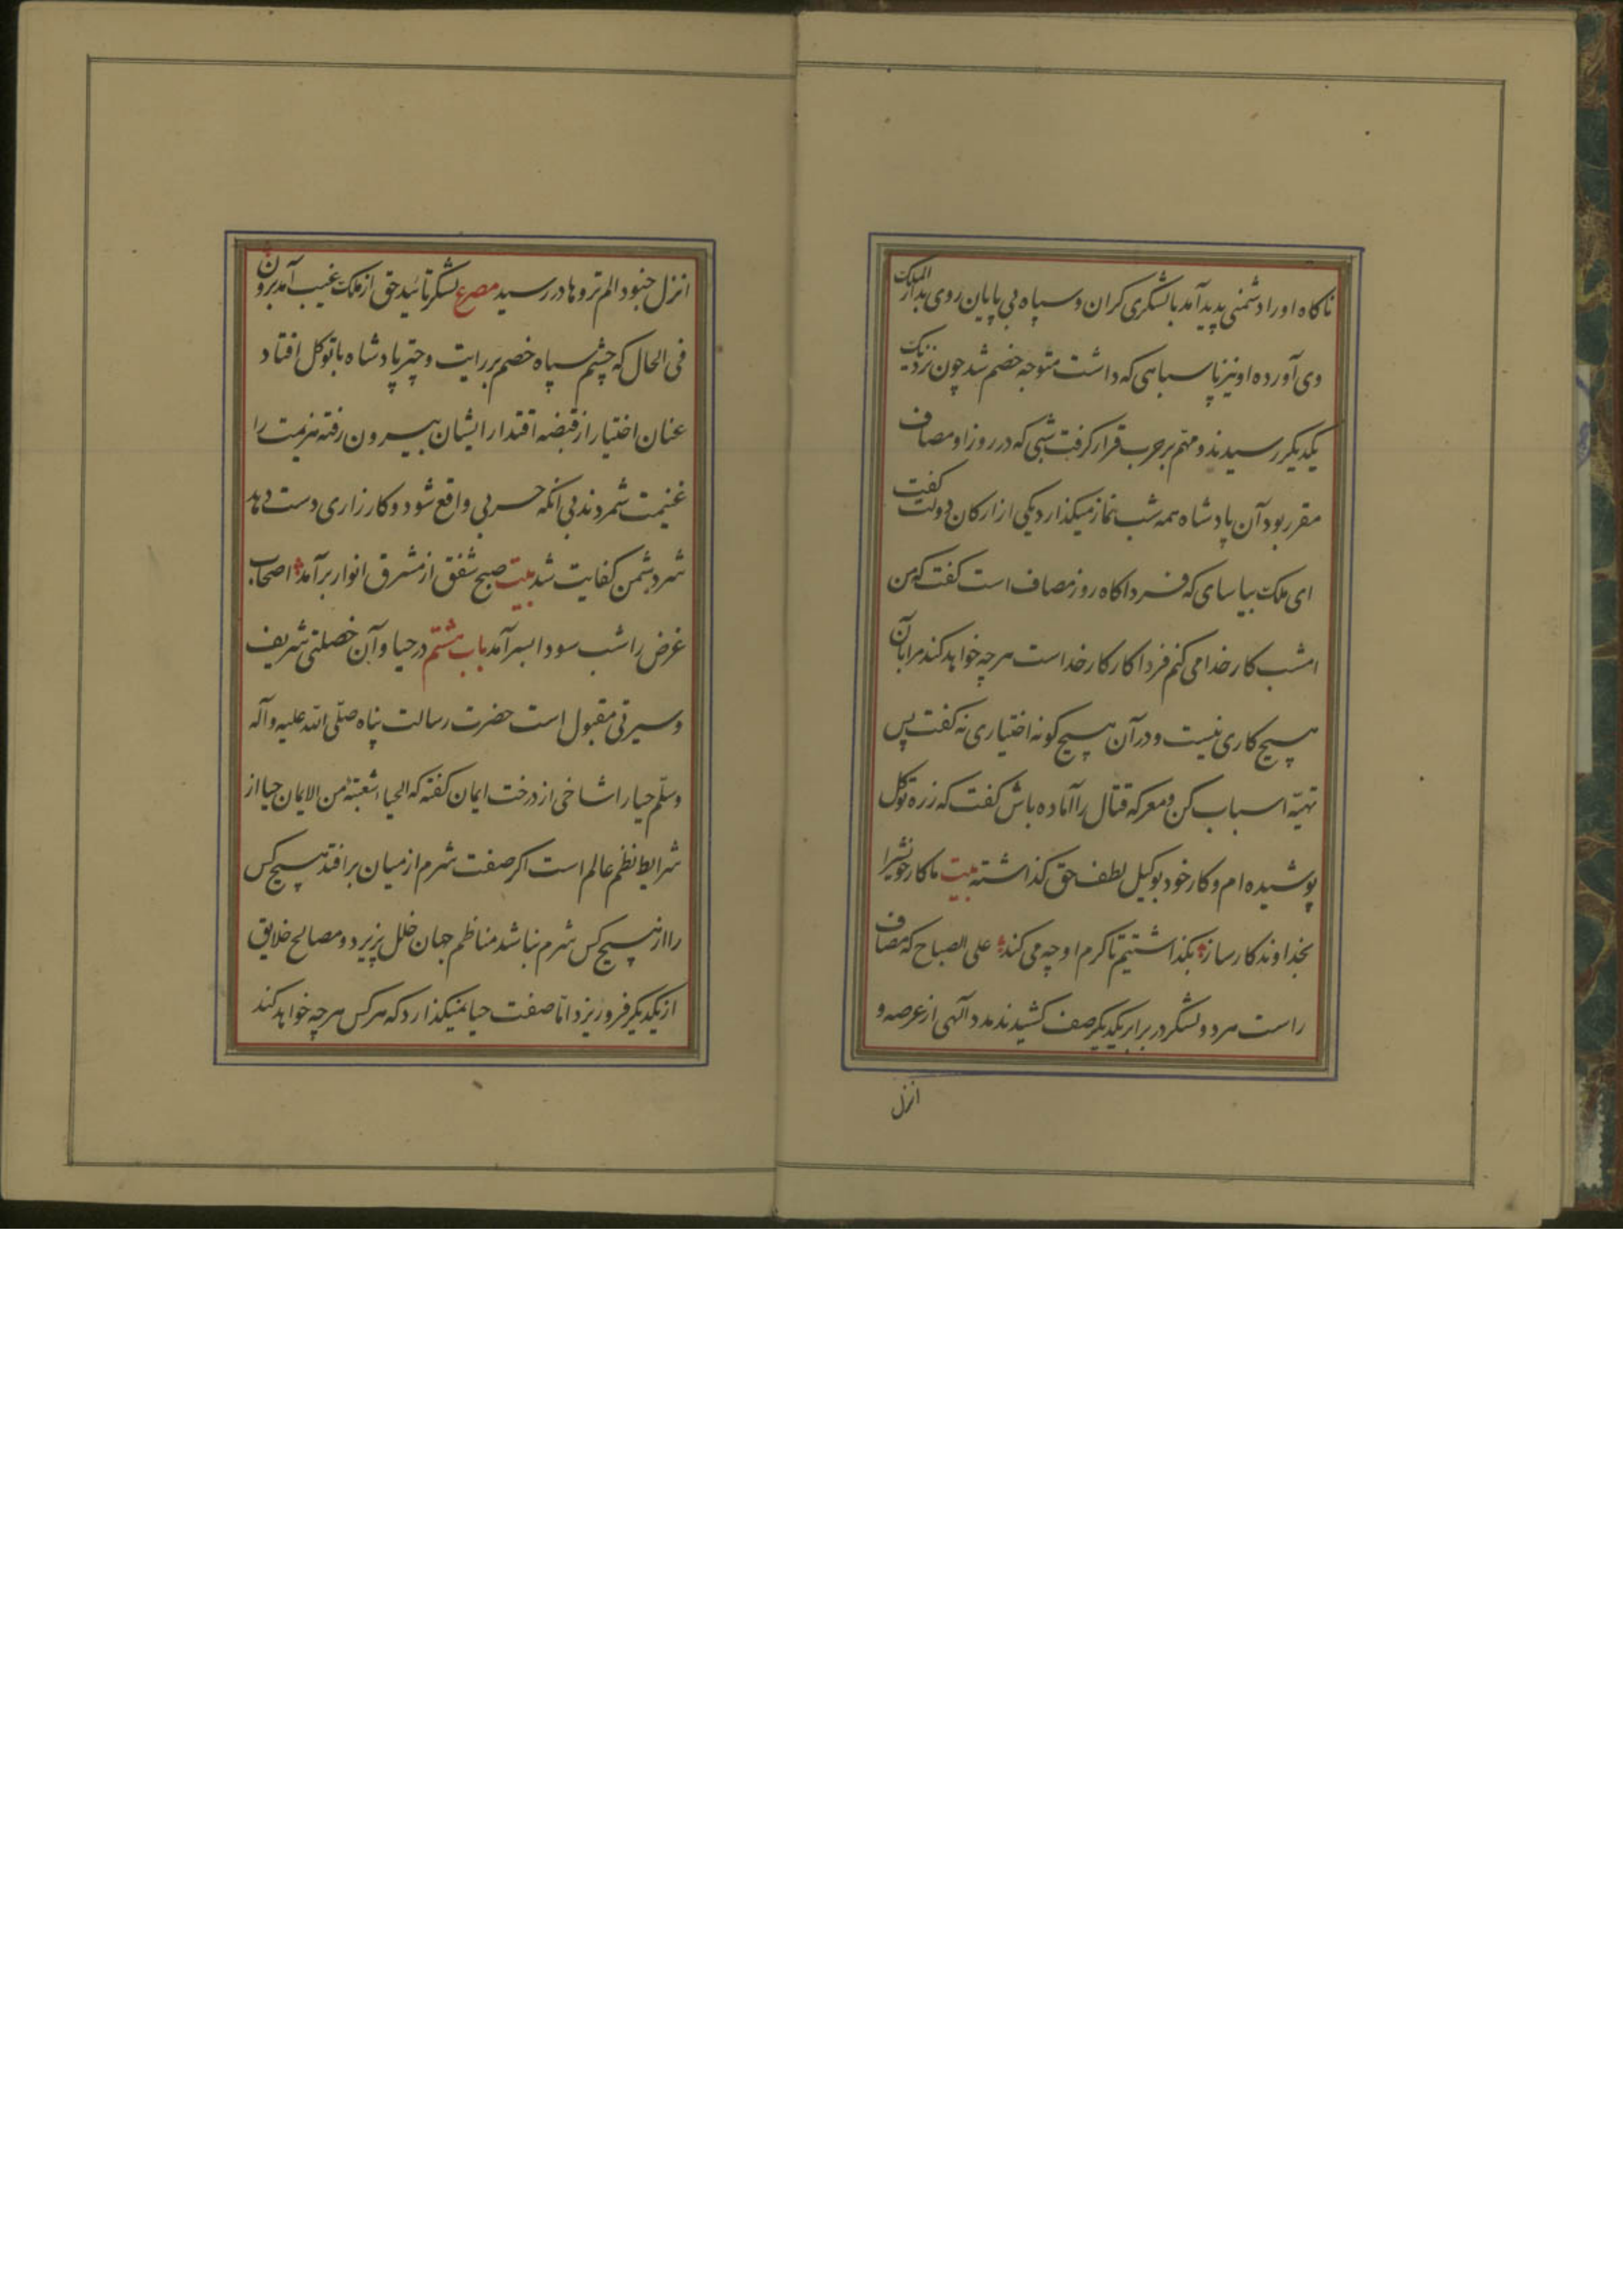 ناکاه اورا دشمنی پدید آمد بالشکری کران و سپاه بی پایان روی بدار الملک
وی آورده او نیز با سپاهی که داشت متوجه خصم شد چون نزدیک
یکدیکر رسیدند و مهم بر حرب قرار کرفت شبی که در روز او مصاف
مقرر بود آن پادشاه همه شب نماز میکذارد یکی از ارکان دولت کفت
ای ملک بیاسای که فردا کاه روز مصاف است کفت که من
امشب کار خدا می کنم فردا کار کار خداست هرچه خواهد کند مرا بآن
هیچ کاری نیست و در آن هیچ کونه اختیاری نه کفت پس
تهیّه اسباب کن و معرکه قتال را آماده باش کفت که زره توکل
پوشیده ام و کار خود بوکیل لطف حق کذاشته بیت ما کار خویشرا
بخداوند کارساز بکذاشتیم تا کرم او چه می کند علی الصباح که مصاف
راست مر دو لشکر در برابر یکدیکر صف کشیدند مدد آلهی از عرصه و
انزل
انزل جنودا لم تروها در رسید مصرع لشکر تائید حق از ملک غیب آمد برون
فی الحال که چشم سپاه خصم بر رایت و چتر پادشاه با توکل افتاد
عنان اختیار از قبضه اقتدار ایشان بیرون رفته هزیمت را
غنیمت شمردند بی آنکه حربی واقع شود و کارزاری دست دهد
شر دشمن کفایت شد بیت صبح شفق از مشرق انوار برآمد اصحاب
غرض را شب سودا بسر آمد باب هشتم در حیا و آن خصلتی شریف
و سیرتی مقبول است حضرت رسالت پناه صلّی الله علیه و آله
وسلّم حیا را شاخی از درخت ایمان کفته که الحیاء شعبتهٔ من الایمان حیا از
شرایط نظم عالم است اکر صفت شرم از میان برافتد هیچ کس
را از هیچ کس شرم نباشد مناظم جهان خلل پزیرد و مصالح خلایق
از یکدیکر فروریزد امّا صفت حیا نمیکذارد که هر کس هرچه خواهد کند